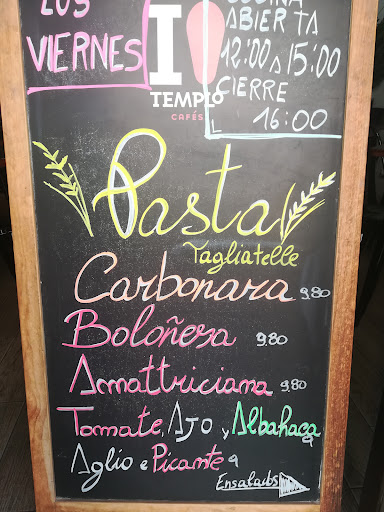 LOS
VIERNES
TEMPLO
CAFÉS
COCINA
ABIERTA
12:00 a 15:00
CIERRE
16:00
Pasta
Tagliatelle
Carbonara 9.80
Boloñesa 9.80
Amattriciana 9.80
Tomate, Ajo y Albahaca
Aglio e Picante 9
Ensaladas